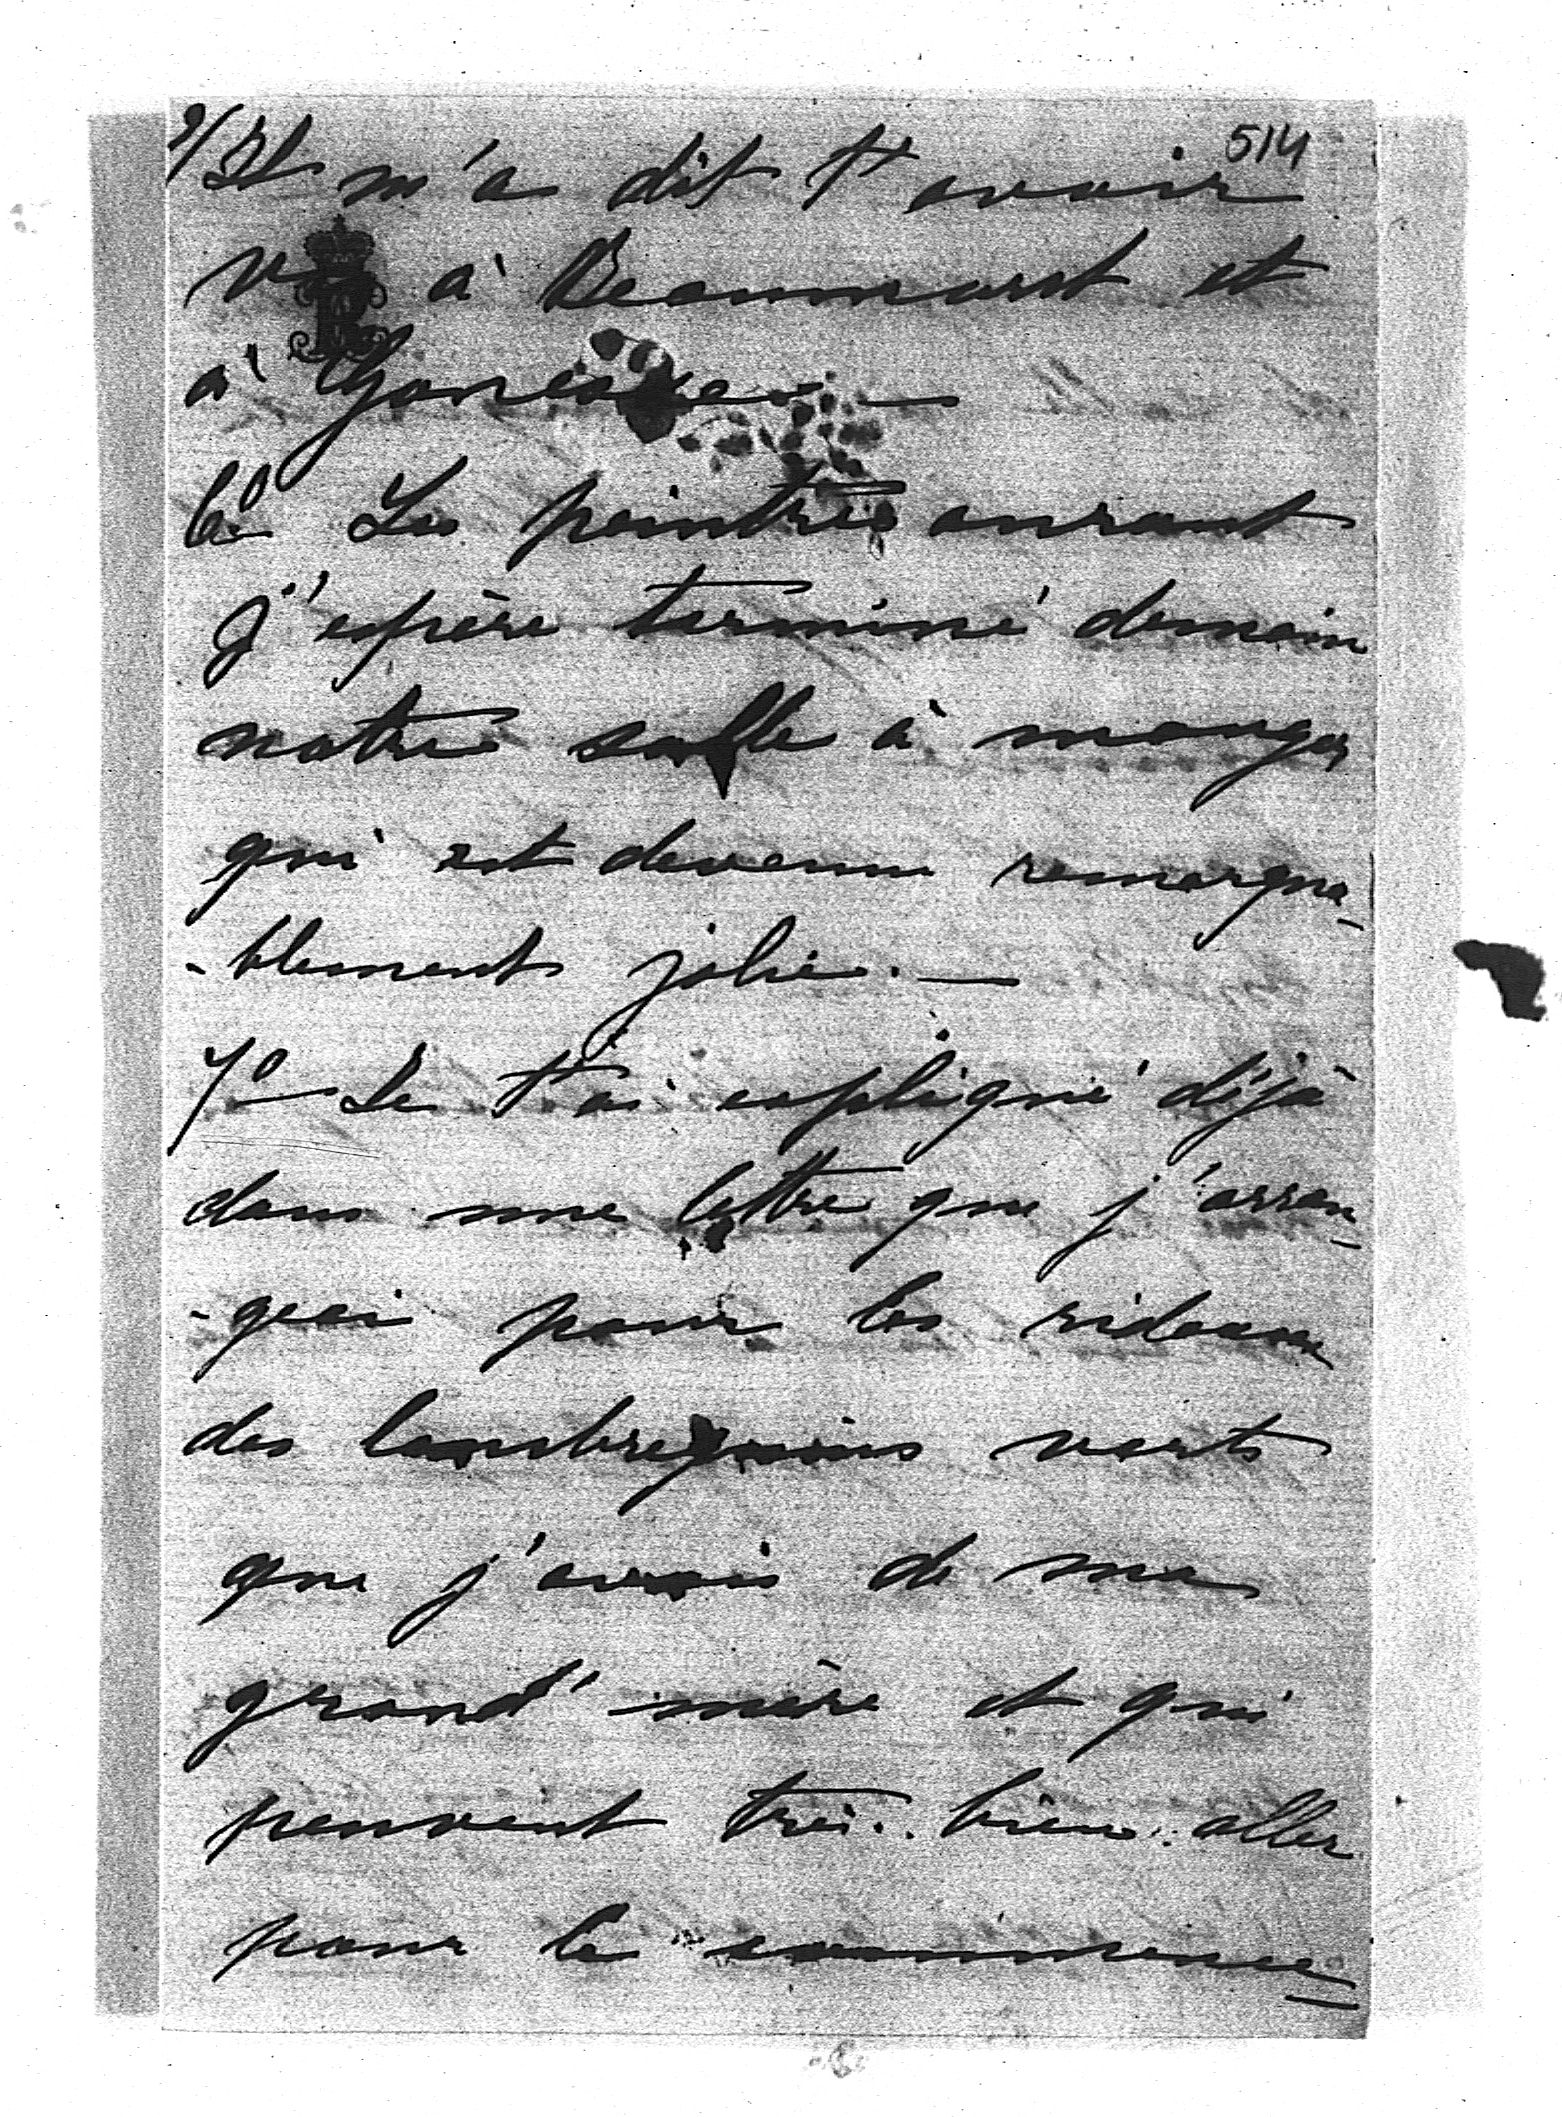 514
2/ Il m'a dit t'avoir
vu à Beaumont et
à Gonesse —
6º Les peintres auront
j'espère terminé demain
notre salle à manger
qui est devenue remarqua-
-blement jolie. —
7º Je t'ai expliqué déjà
dans une lettre que j'arran-
-geai pour les rideaux
des lambrequins verts
que j'avais de ma
grand'mère et qui
peuvent très bien aller
pour le commence=